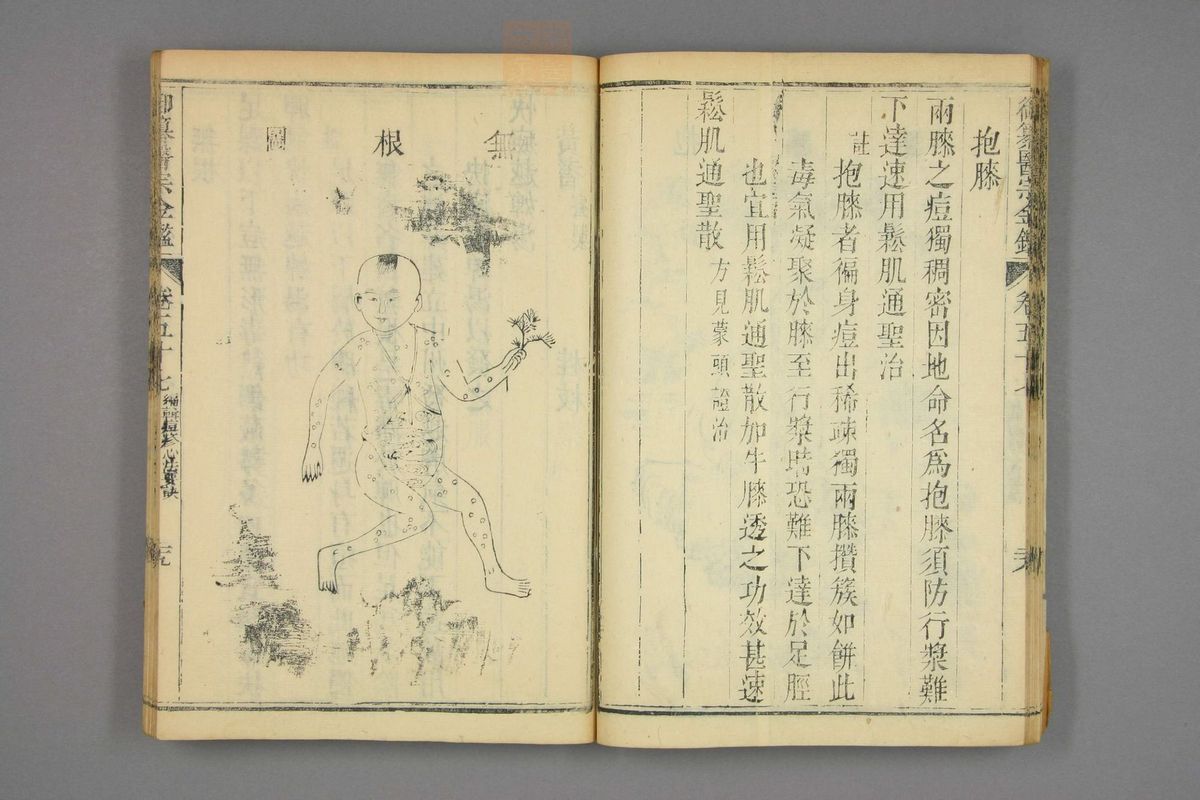 御纂醫宗金鑑 卷五十七
抱膝
兩膝之痘獨稠密因地命名爲抱膝須防行漿難
下達速用鬆肌通聖治
註 抱膝者徧身痘出稀疎獨兩膝攢簇如餅此
毒氣凝聚於膝至行漿時恐難下達於足脛
也宜用鬆肌通聖散加牛膝透之功效甚速
鬆肌通聖散 方見蒙頭證治
無根圖
御纂醫宗金鑑 卷五十七 編輯痘疹心法要訣